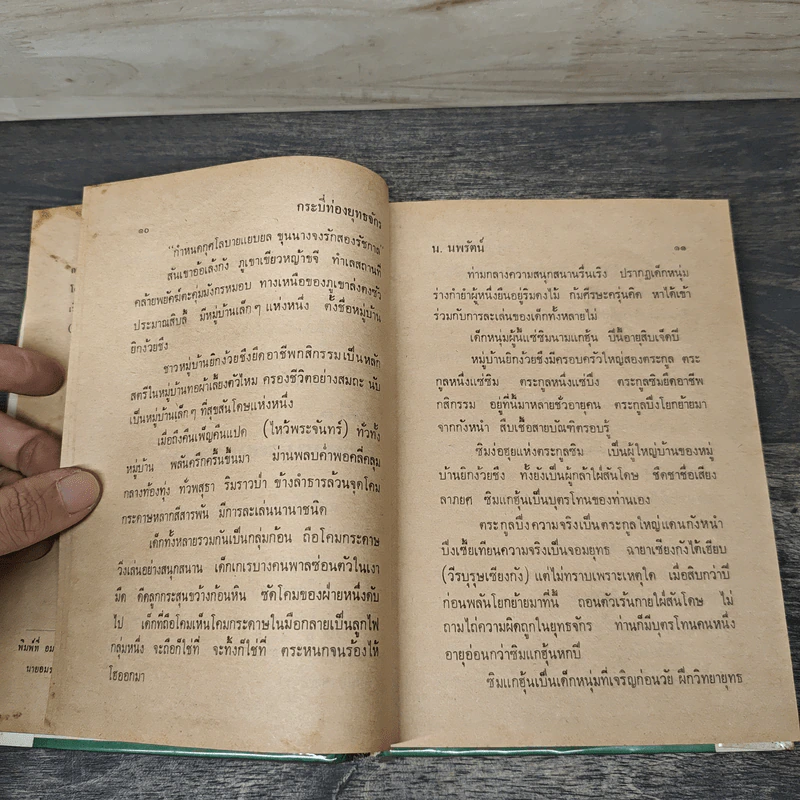 กระบี่ท่องยุทธจักร
๑๐
"กำหนดกุศโลบายแยบยล ขุนนางจงรักสองรัชกาล"
สันเขาย้อเล้งกัง ภูเขาเขียวหญ้าขจี ทำเลสถานที่
คล้ายพยัคฆ์ตะคุ่มมังกรหมอบ ทางเหนือของภูเขาส่งตงซัว
ประมาณสิบลี้ มีหมู่บ้านเล็กๆ แห่งหนึ่ง ตั้งชื่อหมู่บ้าน
ยิกง้วยชึง
ชาวหมู่บ้านยิกง้วยชึงยึดอาชีพกสิกรรมเป็นหลัก
สตรีในหมู่บ้านทอผ้าเลี้ยงตัวไหม ครองชีวิตอย่างสมถะ นับ
เป็นหมู่บ้านเล็กๆ ที่สุขสันโดษแห่งหนึ่ง
เมื่อถึงคืนเพ็ญคืนแปด (ไหว้พระจันทร์) ทั่วทั้ง
หมู่บ้าน พลันครึกครื้นขึ้นมา ม่านพลบค่ำพอคลี่คลุม
กลางท้องทุ่ง ทั่วพสุธา ริมราวป่า ข้างลำธารล้วนจุดโคม
กระดาษหลากสีสารพัน มีการละเล่นนานาชนิด
เด็กทั้งหลายรวมกันเป็นกลุ่มก้อน ถือโคมกระดาษ
วิ่งเล่นอย่างสนุกสนาน เด็กเกเรบางคนพาลซ่อนตัวในเงา
มืด ดีดลูกกระสุนขว้างก้อนหิน ซัดโคมของฝ่ายหนึ่งดับ
ไป เด็กที่ถือโคมเห็นโคมกระดาษในมือกลายเป็นลูกไฟ
กลุ่มหนึ่ง จะถือก็ใช่ที่ จะทิ้งก็ใช่ที่ ตระหนกจนร้องไห้
โฮออกมา
พิมพ์ที่ อม
นายอมร
น. นพรัตน์
๑๑
ท่ามกลางความสนุกสนานรื่นเริง ปรากฏเด็กหนุ่ม
ร่างกำยำผู้หนึ่งยืนอยู่ริมดงไม้ ก้มศีรษะครุ่นคิด หาได้เข้า
ร่วมกับการละเล่นของเด็กทั้งหลายไม่
เด็กหนุ่มผู้นี้แซ่ซิมนามแกฮุ้น ปีนี้อายุสิบเจ็ดปี
หมู่บ้านยิกง้วยชึงมีครอบครัวใหญ่สองตระกูล ตระ
กูลหนึ่งแซ่ซิม ตระกูลหนึ่งแซ่บึ้ง ตระกูลซิมยึดอาชีพ
กสิกรรม อยู่ที่นี้มาหลายชั่วอายุคน ตระกูลบึ้งโยกย้ายมา
จากกังหนำ สืบเชื้อสายบัณฑิตรอบรู้
ซิมง่อฮุยแห่งตระกูลซิม เป็นผู้ใหญ่บ้านของหมู่
บ้านยิกง้วยชึง ทั้งยังเป็นผู้กล้าใฝ่สันโดษ ชืดชาชื่อเสียง
ลาภยศ ซิมแกฮุ้นเป็นบุตรโทนของท่านเอง
ตระกูลบึ้งความจริงเป็นตระกูลใหญ่แดนกังหนำ
บึ้งเซี่ยเทียนความจริงเป็นจอมยุทธ ฉายาเซียงกังไต้เฮียบ
(วีรบุรุษเซียงกัง) แต่ไม่ทราบเพราะเหตุใด เมื่อสิบกว่าปี
ก่อนพลันโยกย้ายมาที่นี้ ถอนตัวเร้นกายใฝ่สันโดษ ไม่
ถามไถ่ความผิดถูกในยุทธจักร ท่านก็มีบุตรโทนคนหนึ่ง
อายุอ่อนกว่าซิมแกฮุ้นหกปี
ซิมแกฮุ้นเป็นเด็กหนุ่มที่เจริญก่อนวัย ฝึกวิทยายุทธ